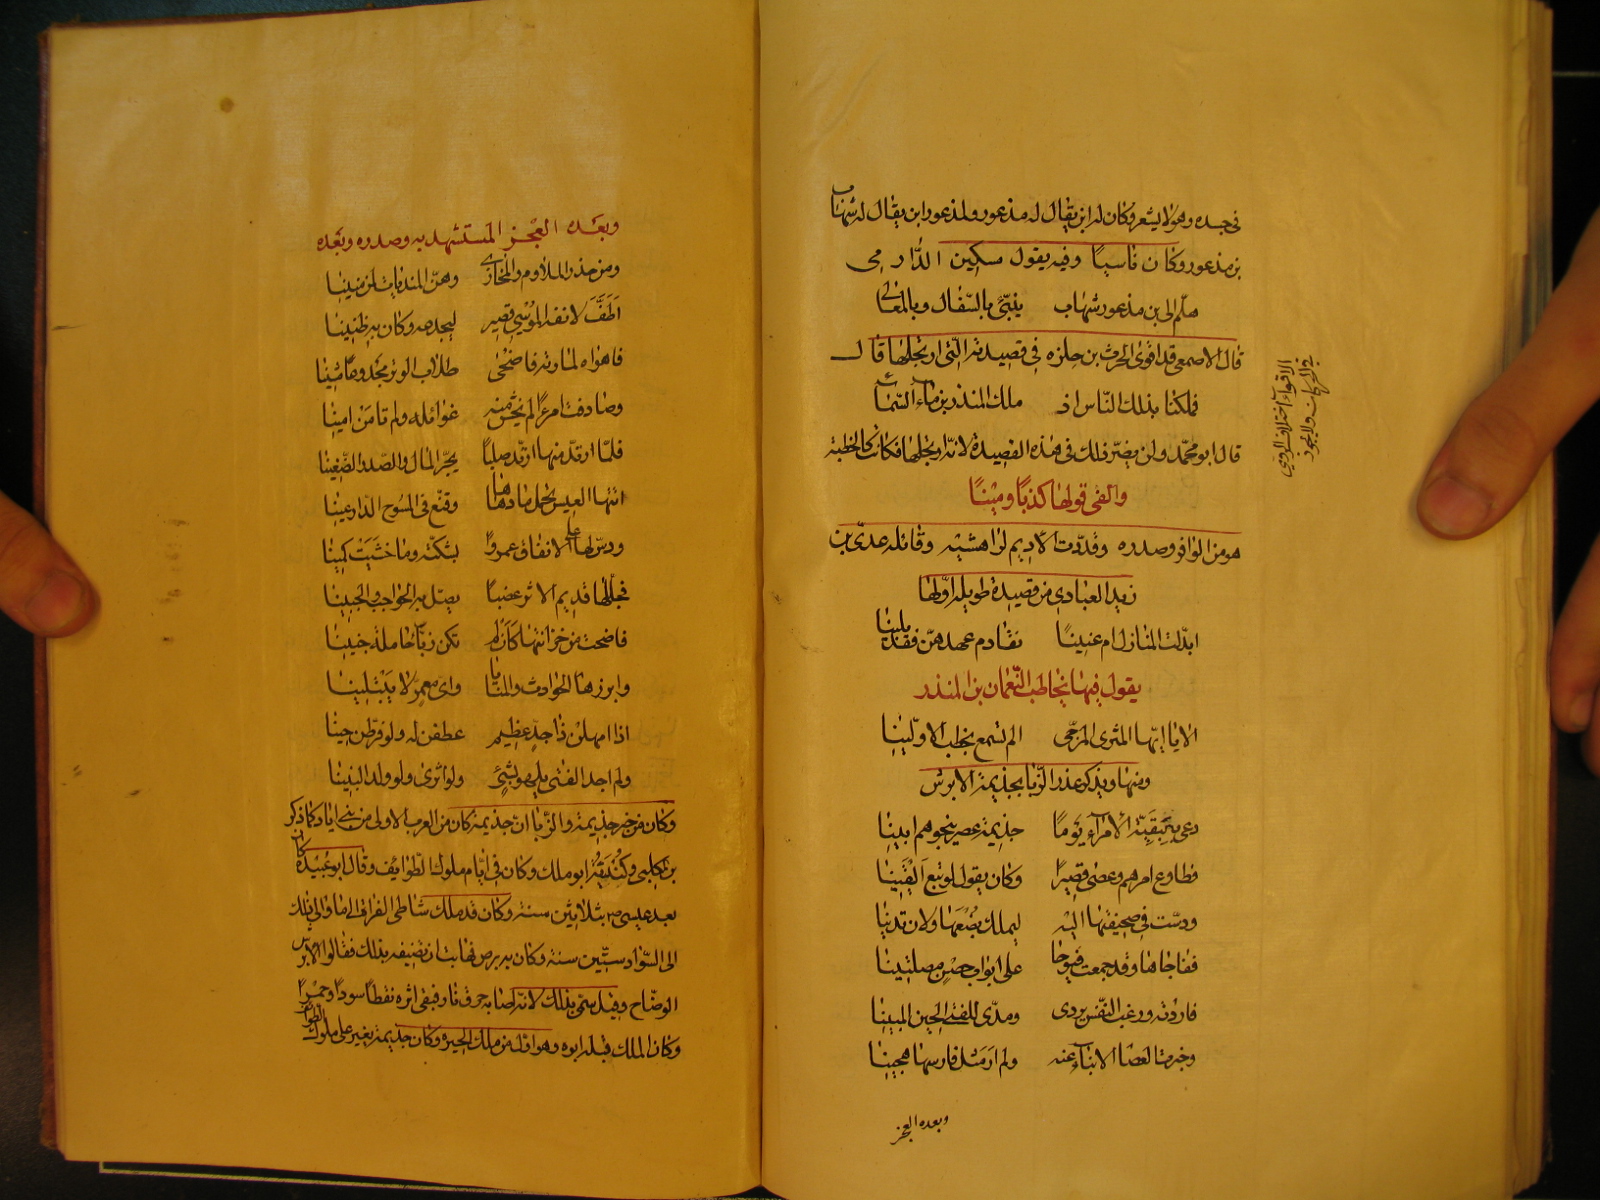 في جده وهو لا يشعر وكان له ابن يقال له مذعور ولمذعور ابن يقال له شهاب
بن مذعور وكان ناسبًا وفيه يقول مسكين الدّارمي
هلّم الى بن مذعور شهاب ينبّئ بالسّفال وبالمعالى
قال الاصمعى قد اقوى الحرث بن حلزه فى قصيدته الّتى ارتجلها قال
فملكنا بذلك النّاس اذ ملك المنذر بن ماء السّماء
قال ابو محمّد ولن يضرّ ذلك فى هذه القصيدة لانّه ارتجلها فكانت كالخطبة
والفى قولها كذبًا ومينًا
هو من الوافر وصدره وقدّدت الاديم لراهشيه وقائله عدىّ بن
زيد العبادى من قصيدة طويلة اوّلها
ابدّلت المنازل ام عنينا تقادم عهدهنّ فقد بلينا
يقول فيها يخاطب النّعمان بن المنذر
الا يا ايّها المثرى المزجّى الم تسمع بخطب الاوّلينا
ومنها ويذكر غدر الزّبا بجذيمة الابرش
دعى ببقّة الامراء يومًا جذيمة عصر ينجوهم ثبينا
فطاوع امرهم وعصى قصيرًا وكان يقول لو تبع اليقينا
ودسّت فى صحيفتها اليه ليملك بضعها ولان تدينا
ففاجاها وقد جمعت فيوجا على ابواب حصن مصلتينا
فاردته ورغب النّفس يردى ومدّى للفتى الحين المبينا
وخبرت العصا الانباء عنه ولم ار مثل فارسها هجينا
وبعده العجز
الاقواء اختلاف الروي
في الحركات ولا يجوز
وبعده العجز المستشهد به وصدره وبعده
ومن حذر الملاوم والمخازى وهنّ المنديات لمن منينا
اطفّ لانفه الموسى قصير ليجدعه وكان به ظنينا
فاهواه لمارنه فاضحى طلاب الوتر مجدوعا مشينا
وصادفت امرءًا لم تخش منه غوائله ولم تامن امينا
فلمّا ارتدّ منها ارتدّ صلبًا يجرّ المال والصّدر الضّغينا
اتتها العيس تحمل ما دهاها وقنّع فى المسوح الدّارعينا
ودسّ لها على الانفاق عمروًا بشكّته وما خشيت كمينا
فجلّلها قديم الاثر عضبًا يصلّ به الحواجب والجبينا
فاضحت من خزائنها كان لم تكن زبّا حاملة جنينا
وابرزها الحوادث والمنايا واى معمر لا يبتلينا
اذا امهلن ذا جد عظيم عطفن له ولو فرّطن حينا
ولم اجد الفتى يلهو بشئ ولو اثرى ولو ولد البنينا
وكان من خبر جذيمة والزّبا ان جذيمة كان من العرب الاولى من بنى اياد كما ذكر
بن الكلبى وكنيته ابو ملك وكان فى ايّام ملوك الطوايف وقال ابو عبيدة كان
بعد عيسى بثلاثين سنة وكان قد ملك شاطى الفرات الى ما والى ذلك
الى السّواد ستّين سنة وكان به برص فهابت ان تضيفه بذلك فقالوا الابرش
الوضّاح وقيل سمّى بذلك لانّه اصابه حرق نار فبقى اثره نقطًا سودًا وحمرًا
وكان الملك قبله ابوه وهو اوّل من ملك الحيرة وكان جذيمة يغير على ملوك الطوائف